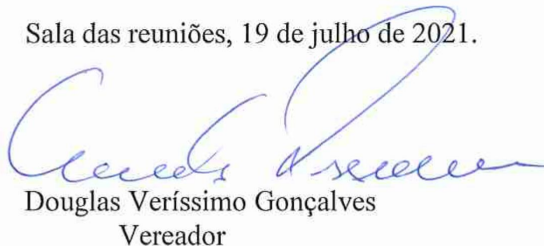 Sala das reuniões, 19 de julho de 2021.
Douglas Veríssimo Gonçalves
Vereador